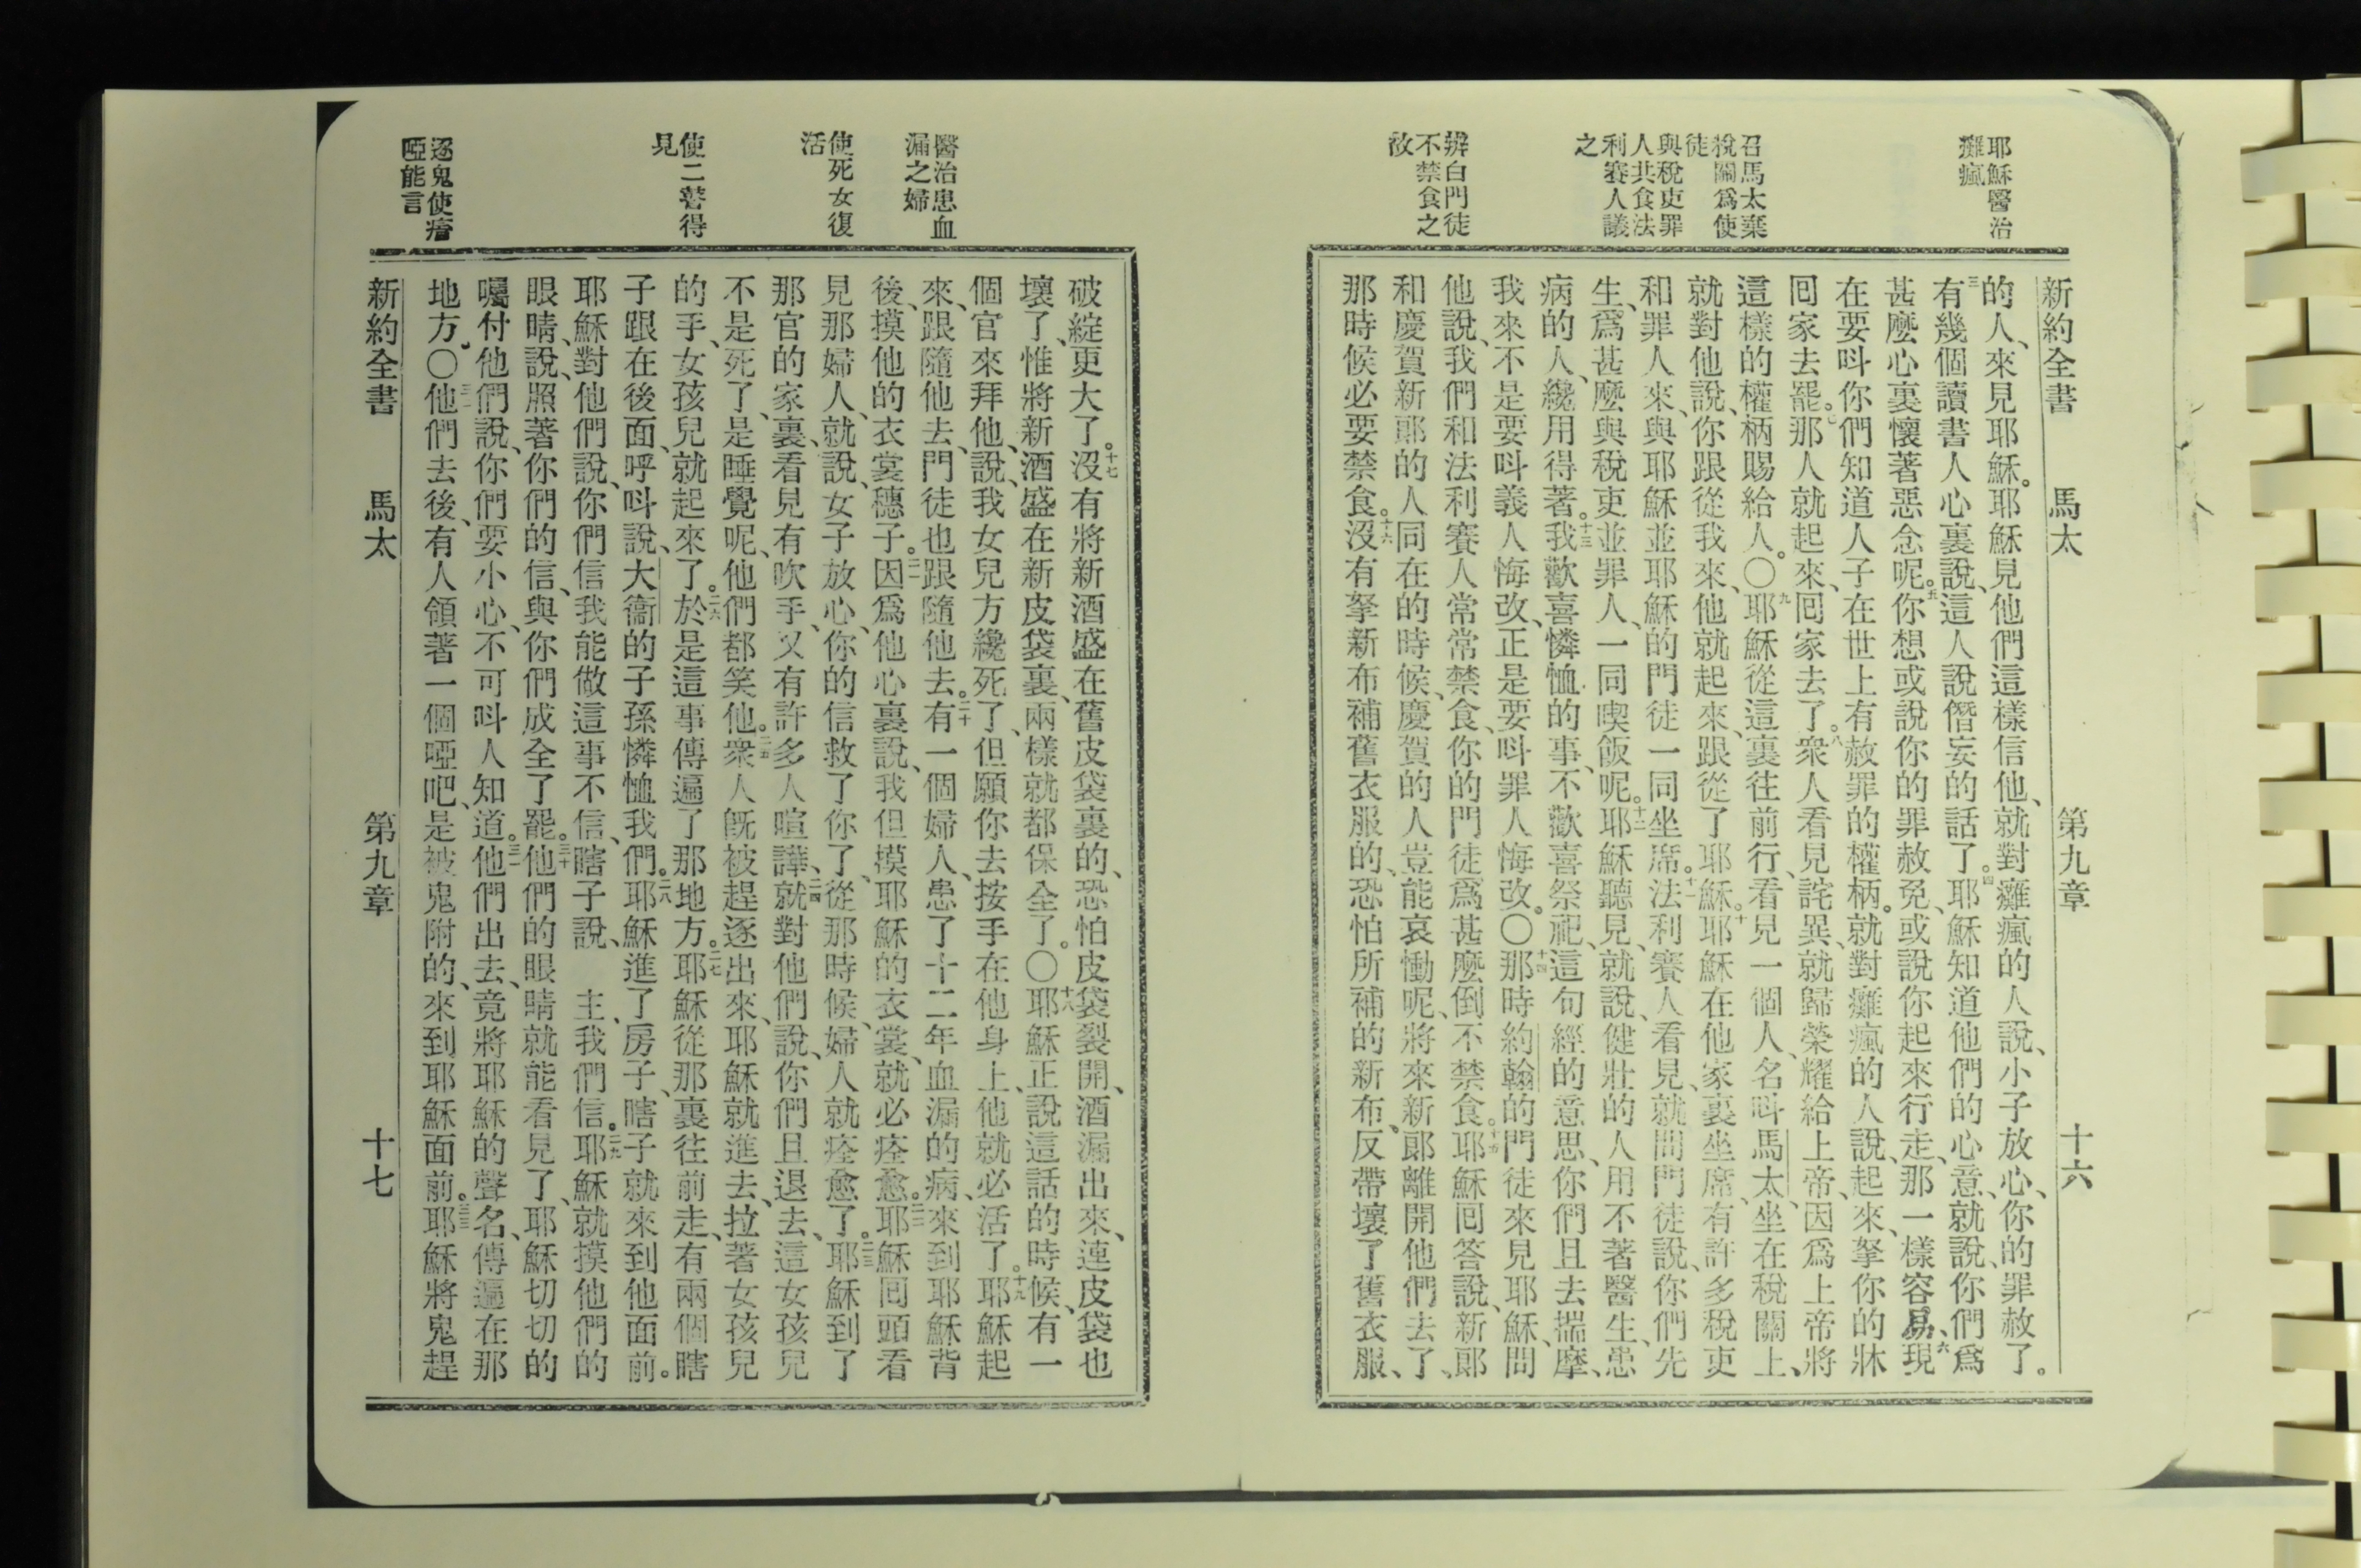 耶穌醫治
癱瘋
召馬太棄
稅關爲使
徒
與稅吏罪
人共食法
利賽人議
之
辨白門徒
不禁食之
故
新約全書 馬太 第九章 十六
的人、來見耶穌。耶穌見他們這樣信他、就對癱瘋的人說、小子放心、你的罪赦了。
三有幾個讀書人心裏說、這人說僭妄的話了。四耶穌知道他們的心意、就說、你們爲
甚麼心裏懷著惡念呢。五你想或說你的罪赦免、或說你起來行走、那一樣容易、六現
在要呌你們知道人子在世上有赦罪的權柄。就對癱瘋的人說、起來、拏你的牀
回家去罷。七那人就起來、回家去了。八衆人看見詫異、就歸榮耀給上帝、因爲上帝將
這樣的權柄賜給人。〇九耶穌從這裏往前行、看見一個人、名呌馬太、坐在稅關上、
就對他說、你跟從我來、他就起來、跟從了耶穌。十耶穌在他家裏坐席、有許多稅吏
和罪人來、與耶穌並耶穌的門徒一同坐席。十一法利賽人看見、就問門徒說、你們先
生、爲甚麼與稅吏並罪人、一同喫飯呢。十二耶穌聽見、就說、健壯的人用不著醫生、患
病的人、纔用得著。十三我歡喜憐恤的事、不歡喜祭祀、這句經的意思、你們且去揣摩、
我來不是要呌義人悔改、正是要呌罪人悔改。〇十四那時約翰的門徒來見耶穌、問
他說、我們和法利賽人常常禁食、你的門徒爲甚麼倒不禁食。十五耶穌回答說、新郞
和慶賀新郞的人同在的時候、慶賀的人豈能哀慟呢、將來新郞離開他們去了、
那時候必要禁食。十六沒有拏新布補舊衣服的、恐怕所補的新布、反帶壞了舊衣服、
醫治患血
漏之婦
使死女復
活
使二瞽得
見
逐鬼使瘖
啞能言
破綻更大了。十七沒有將新酒盛在舊皮袋裏的、恐怕皮袋裂開、酒漏出來、連皮袋也
壞了、惟將新酒盛在新皮袋裏、兩樣就都保全了。〇十八耶穌正說這話的時候、有一
個官來拜他、說、我女兒方纔死了、但願你去按手在他身上、他就必活了。十九耶穌起
來、跟隨他去、門徒也跟隨他去。二十有一個婦人、患了十二年血漏的病、來到耶穌背
後、摸他的衣裳穗子。二一因爲他心裏說、我但摸耶穌的衣裳、就必痊愈。二二耶穌回頭看
見那婦人、就說、女子放心、你的信救了你了、從那時候、婦人就痊愈了。二三耶穌到了
那官的家裏、看見有吹手、又有許多人喧譁、二四就對他們說、你們且退去、這女孩兒
不是死了、是睡覺呢、他們都笑他。二五衆人旣被趕逐出來、耶穌就進去、拉著女孩兒
的手、女孩兒就起來了。二六於是這事傳遍了那地方。二七耶穌從那裏往前走、有兩個瞎
子跟在後面、呼呌說、大衞的子孫憐恤我們。二八耶穌進了房子、瞎子就來到他面前。
耶穌對他們說、你們信我能做這事不信、瞎子說、 主、我們信。二九耶穌就摸他們的
眼睛、說、照著你們的信、與你們成全了罷。三十他們的眼睛就能看見了、耶穌切切的
囑付他們說、你們要小心、不可呌人知道。三一他們出去、竟將耶穌的聲名、傳遍在那
地方。〇三二他們去後、有人領著一個啞吧、是被鬼附的、來到耶穌面前。三三耶穌將鬼趕
新約全書 馬太 第九章 十七